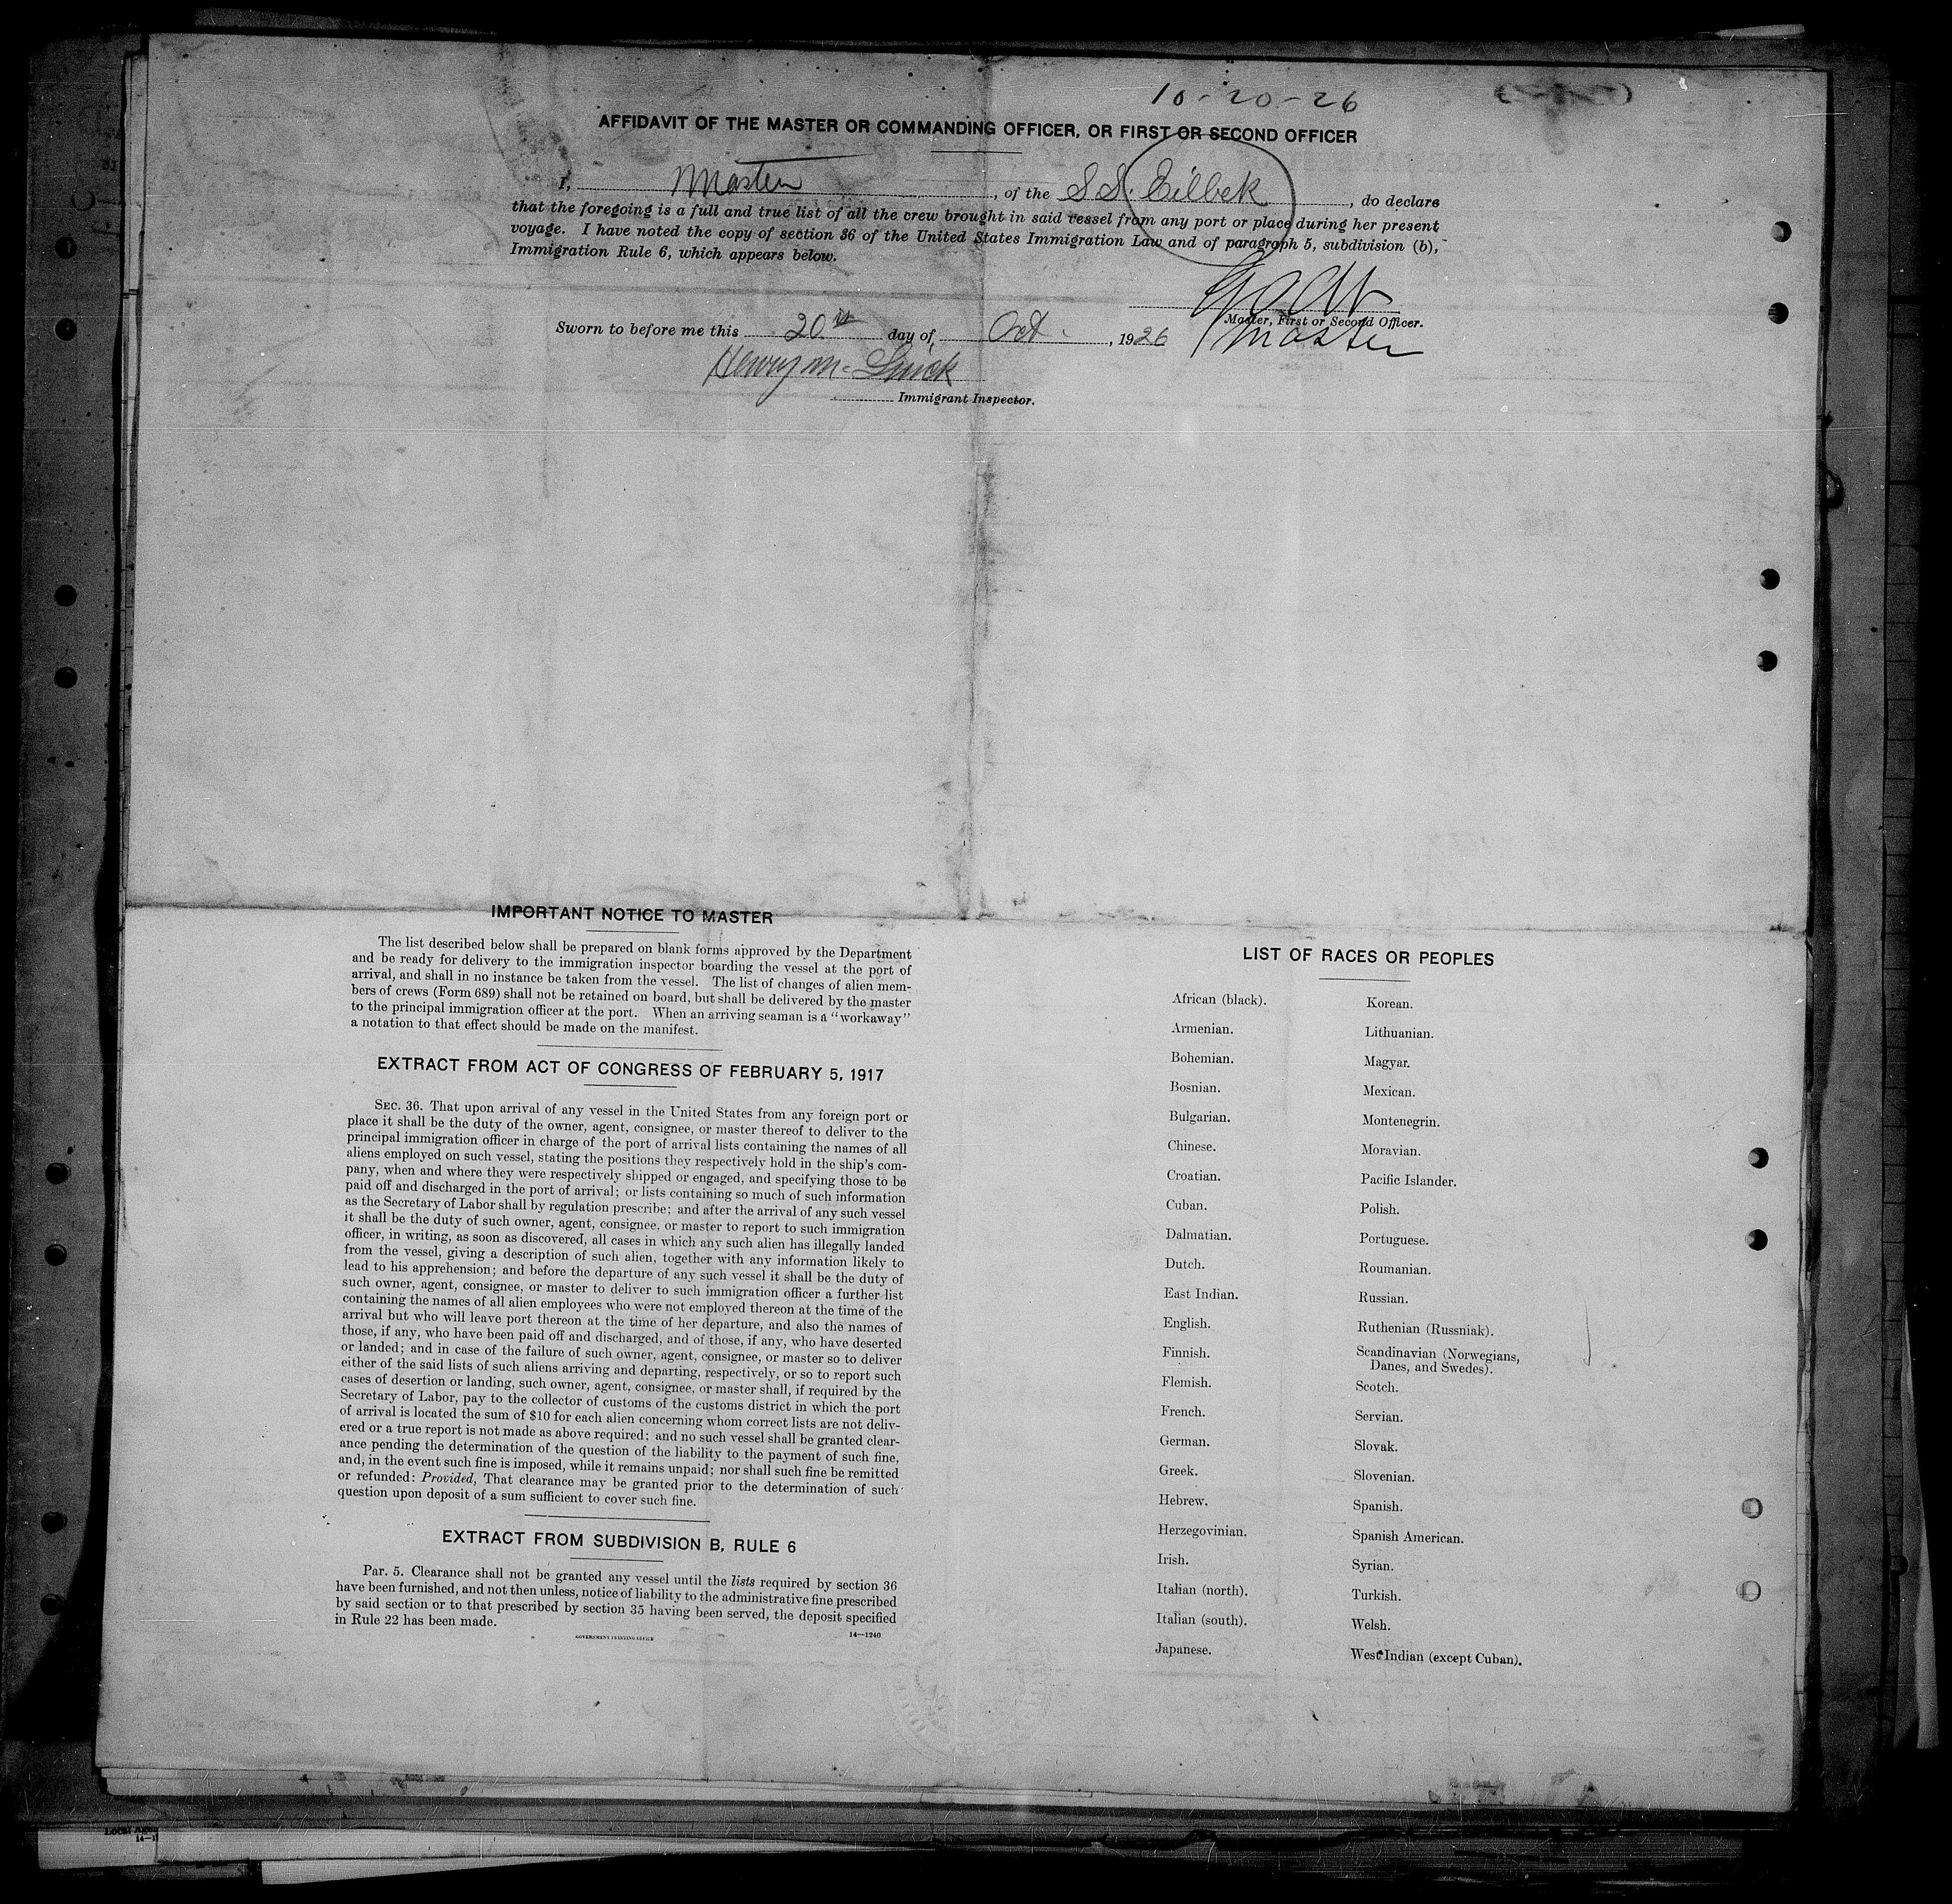 10-20-26
AFFIDAVIT OF THE MASTER OR COMMANDING OFFICER, OR FIRST OR SECOND OFFICER
I, Master, of the S.S. Eilbek, do declare
that the foregoing is a full and true list of all the crew brought in said vessel from any port or place during her present
voyage. I have noted the copy of section 36 of the United States Immigration Law and of paragraph 5, subdivision (b),
Immigration Rule 6, which appears below.
Master, First or Second Officer.
Sworn to before me this 20th day of Oct., 1926
Master
Henry M.
Immigrant Inspector.
IMPORTANT NOTICE TO MASTER
The list described below shall be prepared on blank forms approved by the Department
and be ready for delivery to the immigration inspector boarding the vessel at the port of
arrival, and shall in no instance be taken from the vessel. The list of changes of alien mem-
bers of crews (Form 689) shall not be retained on board, but shall be delivered by the master
to the principal immigration officer at the port. When an arriving seaman is a "workaway"
a notation to that effect should be made on the manifest.
EXTRACT FROM ACT OF CONGRESS OF FEBRUARY 5, 1917
SEC. 36. That upon arrival of any vessel in the United States from any foreign port or
place it shall be the duty of the owner, agent, consignee, or master thereof to deliver to the
principal immigration officer in charge of the port of arrival lists containing the names of all
aliens employed on such vessel, stating the positions they respectively hold in the ship's com-
pany, when and where they were respectively shipped or engaged, and specifying those to be
paid off and discharged in the port of arrival; or lists containing so much of such information
as the Secretary of Labor shall by regulation prescribe; and after the arrival of any such vessel
it shall be the duty of such owner, agent, consignee. or master to report to such immigration
officer, in writing, as soon as discovered, all cases in which any such alien has illegally landed
from the vessel, giving a description of such alien, together with any information likely to
lead to his apprehension; and before the departure of any such vessel it shall be the duty of
such owner, agent, consignee, or master to deliver to such immigration officer a further list
containing the names of all alien employees who were not employed thereon at the time of the
arrival but who will leave port thereon at the time of her departure, and also the names of
those, if any, who have been paid off and discharged, and of those, if any, who have deserted
or landed; and in case of the failure of such owner, agent, consignee, or master so to deliver
either of the said lists of such aliens arriving and departing, respectively, or so to report such
cases of desertion or landing, such owner, agent, consignee, or master shall, if required by the
Secretary of Labor, pay to the collector of customs of the customs district in which the port
of arrival is located the sum of $10 for each alien concerning whom correct lists are not deliv-
ered or a true report is not made as above required; and no such vessel shall be granted clear-
ance pending the determination of the question of the liability to the payment of such fine,
and, in the event such fine is imposed, while it remains unpaid; nor shall such fine be remitted
or refunded: Provided, That clearance may be granted prior to the determination of such
question upon deposit of a sum sufficient to cover such fine.
EXTRACT FROM SUBDIVISION B, RULE 6
Par. 5. Clearance shall not be granted any vessel until the lists required by section 36
have been furnished, and not then unless, notice of liability to the administrative fine prescribed
by said section or to that prescribed by section 35 having been served, the deposit specified
in Rule 22 has been made.
GOVERNMENT PRINTING OFFICE 14—1240
LIST OF RACES OR PEOPLES
African (black).
Armenian.
Bohemian.
Bosnian.
Bulgarian.
Chinese.
Croatian.
Cuban.
Dalmatian.
Dutch.
East Indian.
English.
Finnish.
Flemish.
French.
German.
Greek.
Hebrew.
Herzegovinian.
Irish.
Italian (north).
Italian (south).
Japanese.
Korean.
Lithuanian.
Magyar.
Mexican.
Montenegrin.
Moravian.
Pacific Islander.
Polish.
Portuguese.
Roumanian.
Russian.
Ruthenian (Russniak).
Scandinavian (Norwegians,
Danes, and Swedes).
Scotch.
Servian.
Slovak.
Slovenian.
Spanish.
Spanish American.
Syrian.
Turkish.
Welsh.
West Indian (except Cuban).